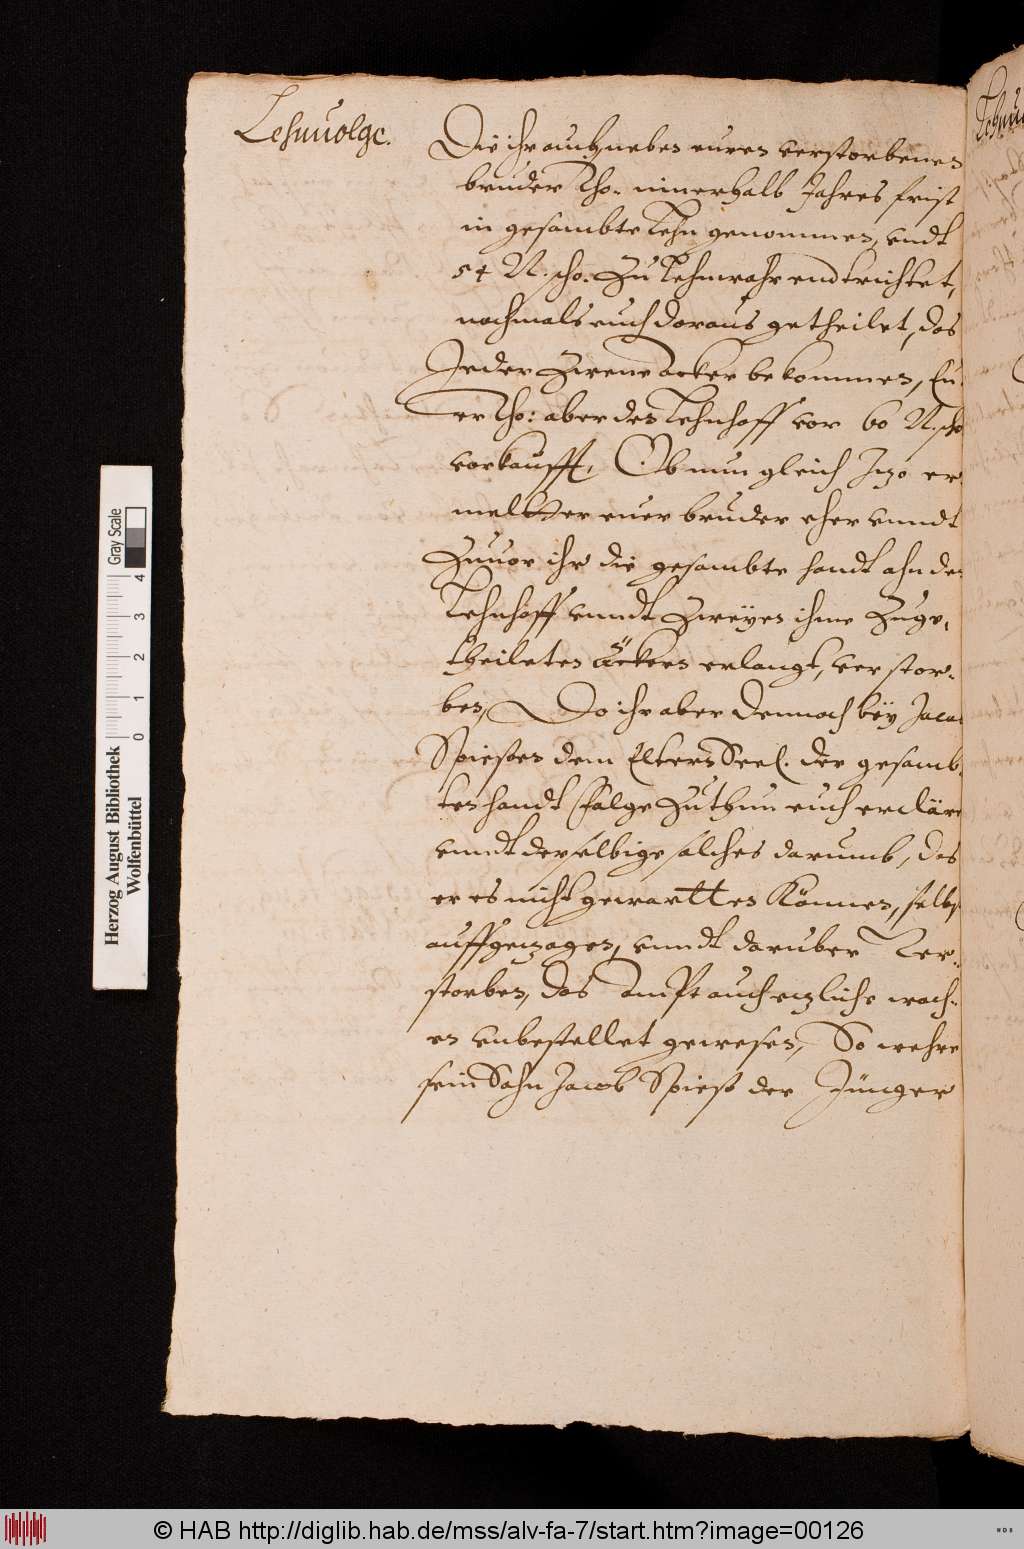 Lehnuolge.
Die ihr auch neben euren verstorbenen
bruder Tho. innerhalb Jahres frist
in gesambte Lehn genommen, vndt
54 N. scho. Zu Lehnwahr endtrichtet,
nachmals euch daraus getheilet, das
Jeder Zwene Acker bekommen, Eu-
er Tho: aber den Lehnhoff vor 60 N. scho
vorkaufft, Ob nun gleich Jtzo er
melter euer bruder eher vnndt
Zuuor ihr die gesambte handt ahn den
Lehnhoff vnndt Zweÿen ihme Zuge,
theileten Äckern erlangt, verstor-
ben, Do ihr aber dennoch beÿ Jacob
Spiesen dem Eltern Seel. der gesamb-
ten handt folge Zuthun euch erclärt
vnndt derselbige solches darumb, das
er es nicht gewartten Können, selbst
auffgezogen, vnndt daruber Ver-
storben, das Ampt auch etzliche woch-
en vnbestellet gewesen, So wehre
sein Sohn Jacob Spieß der Jünger
Herzog August Bibliothek
Wolfenbüttel
0 1 2 3 4
Gray Scale
© HAB http://diglib.hab.de/mss/alv-fa-7/start.htm?image=00126